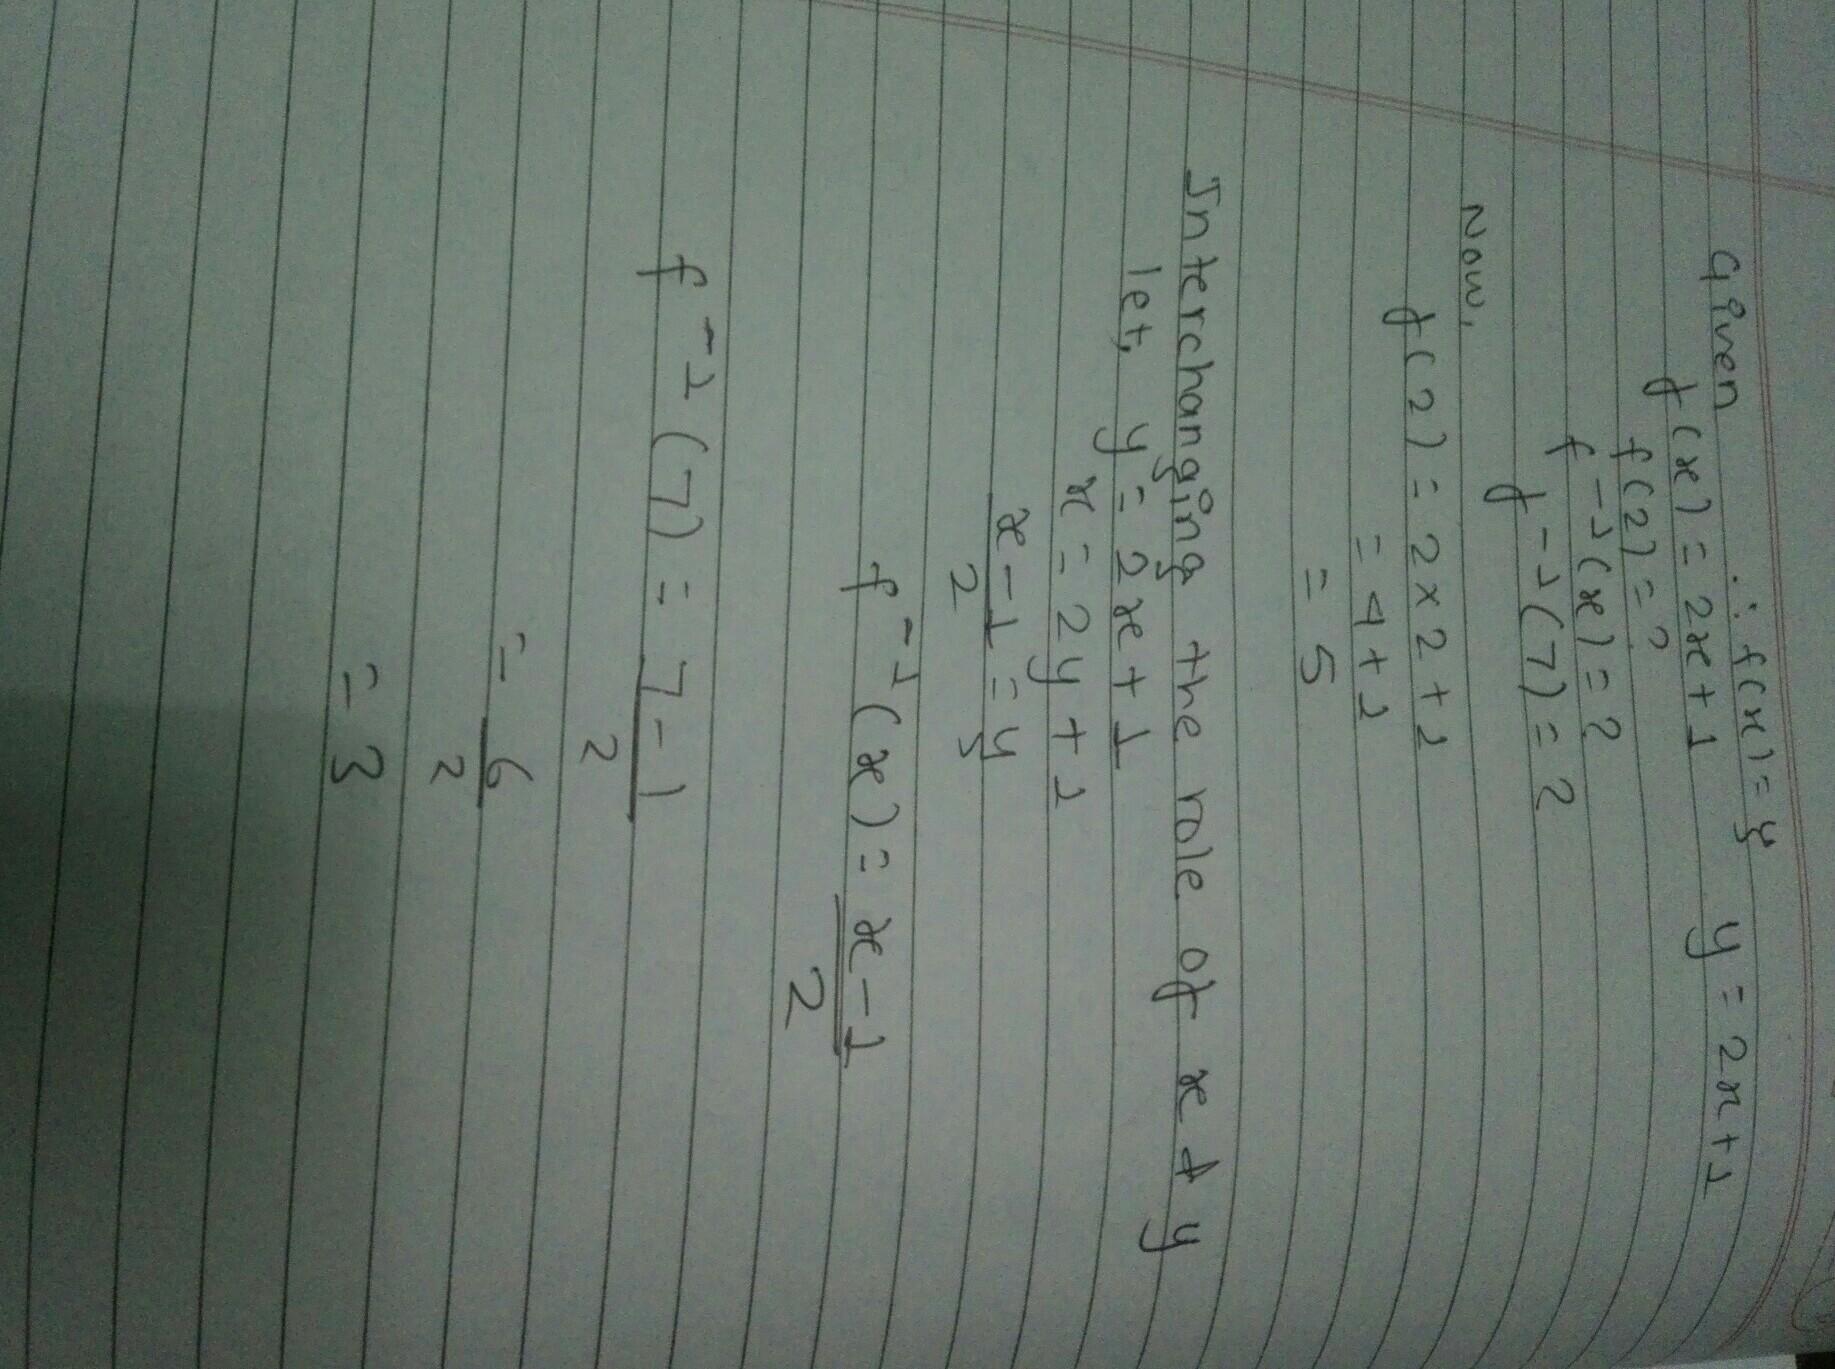 ∴ f(x) = y    y = 2x+1
Given
f(x) = 2x+1
f(2) = ?
f⁻¹(x) = ?
f⁻¹(7) = ?
Now,
f(2) = 2×2+1
= 4+1
= 5
Interchanging the role of x & y
let, y = 2x+1
x = 2y+1
x-1/2 = y
f⁻¹(x) = x-1/2
f⁻¹(7) = 7-1/2
= 6/2
= 3